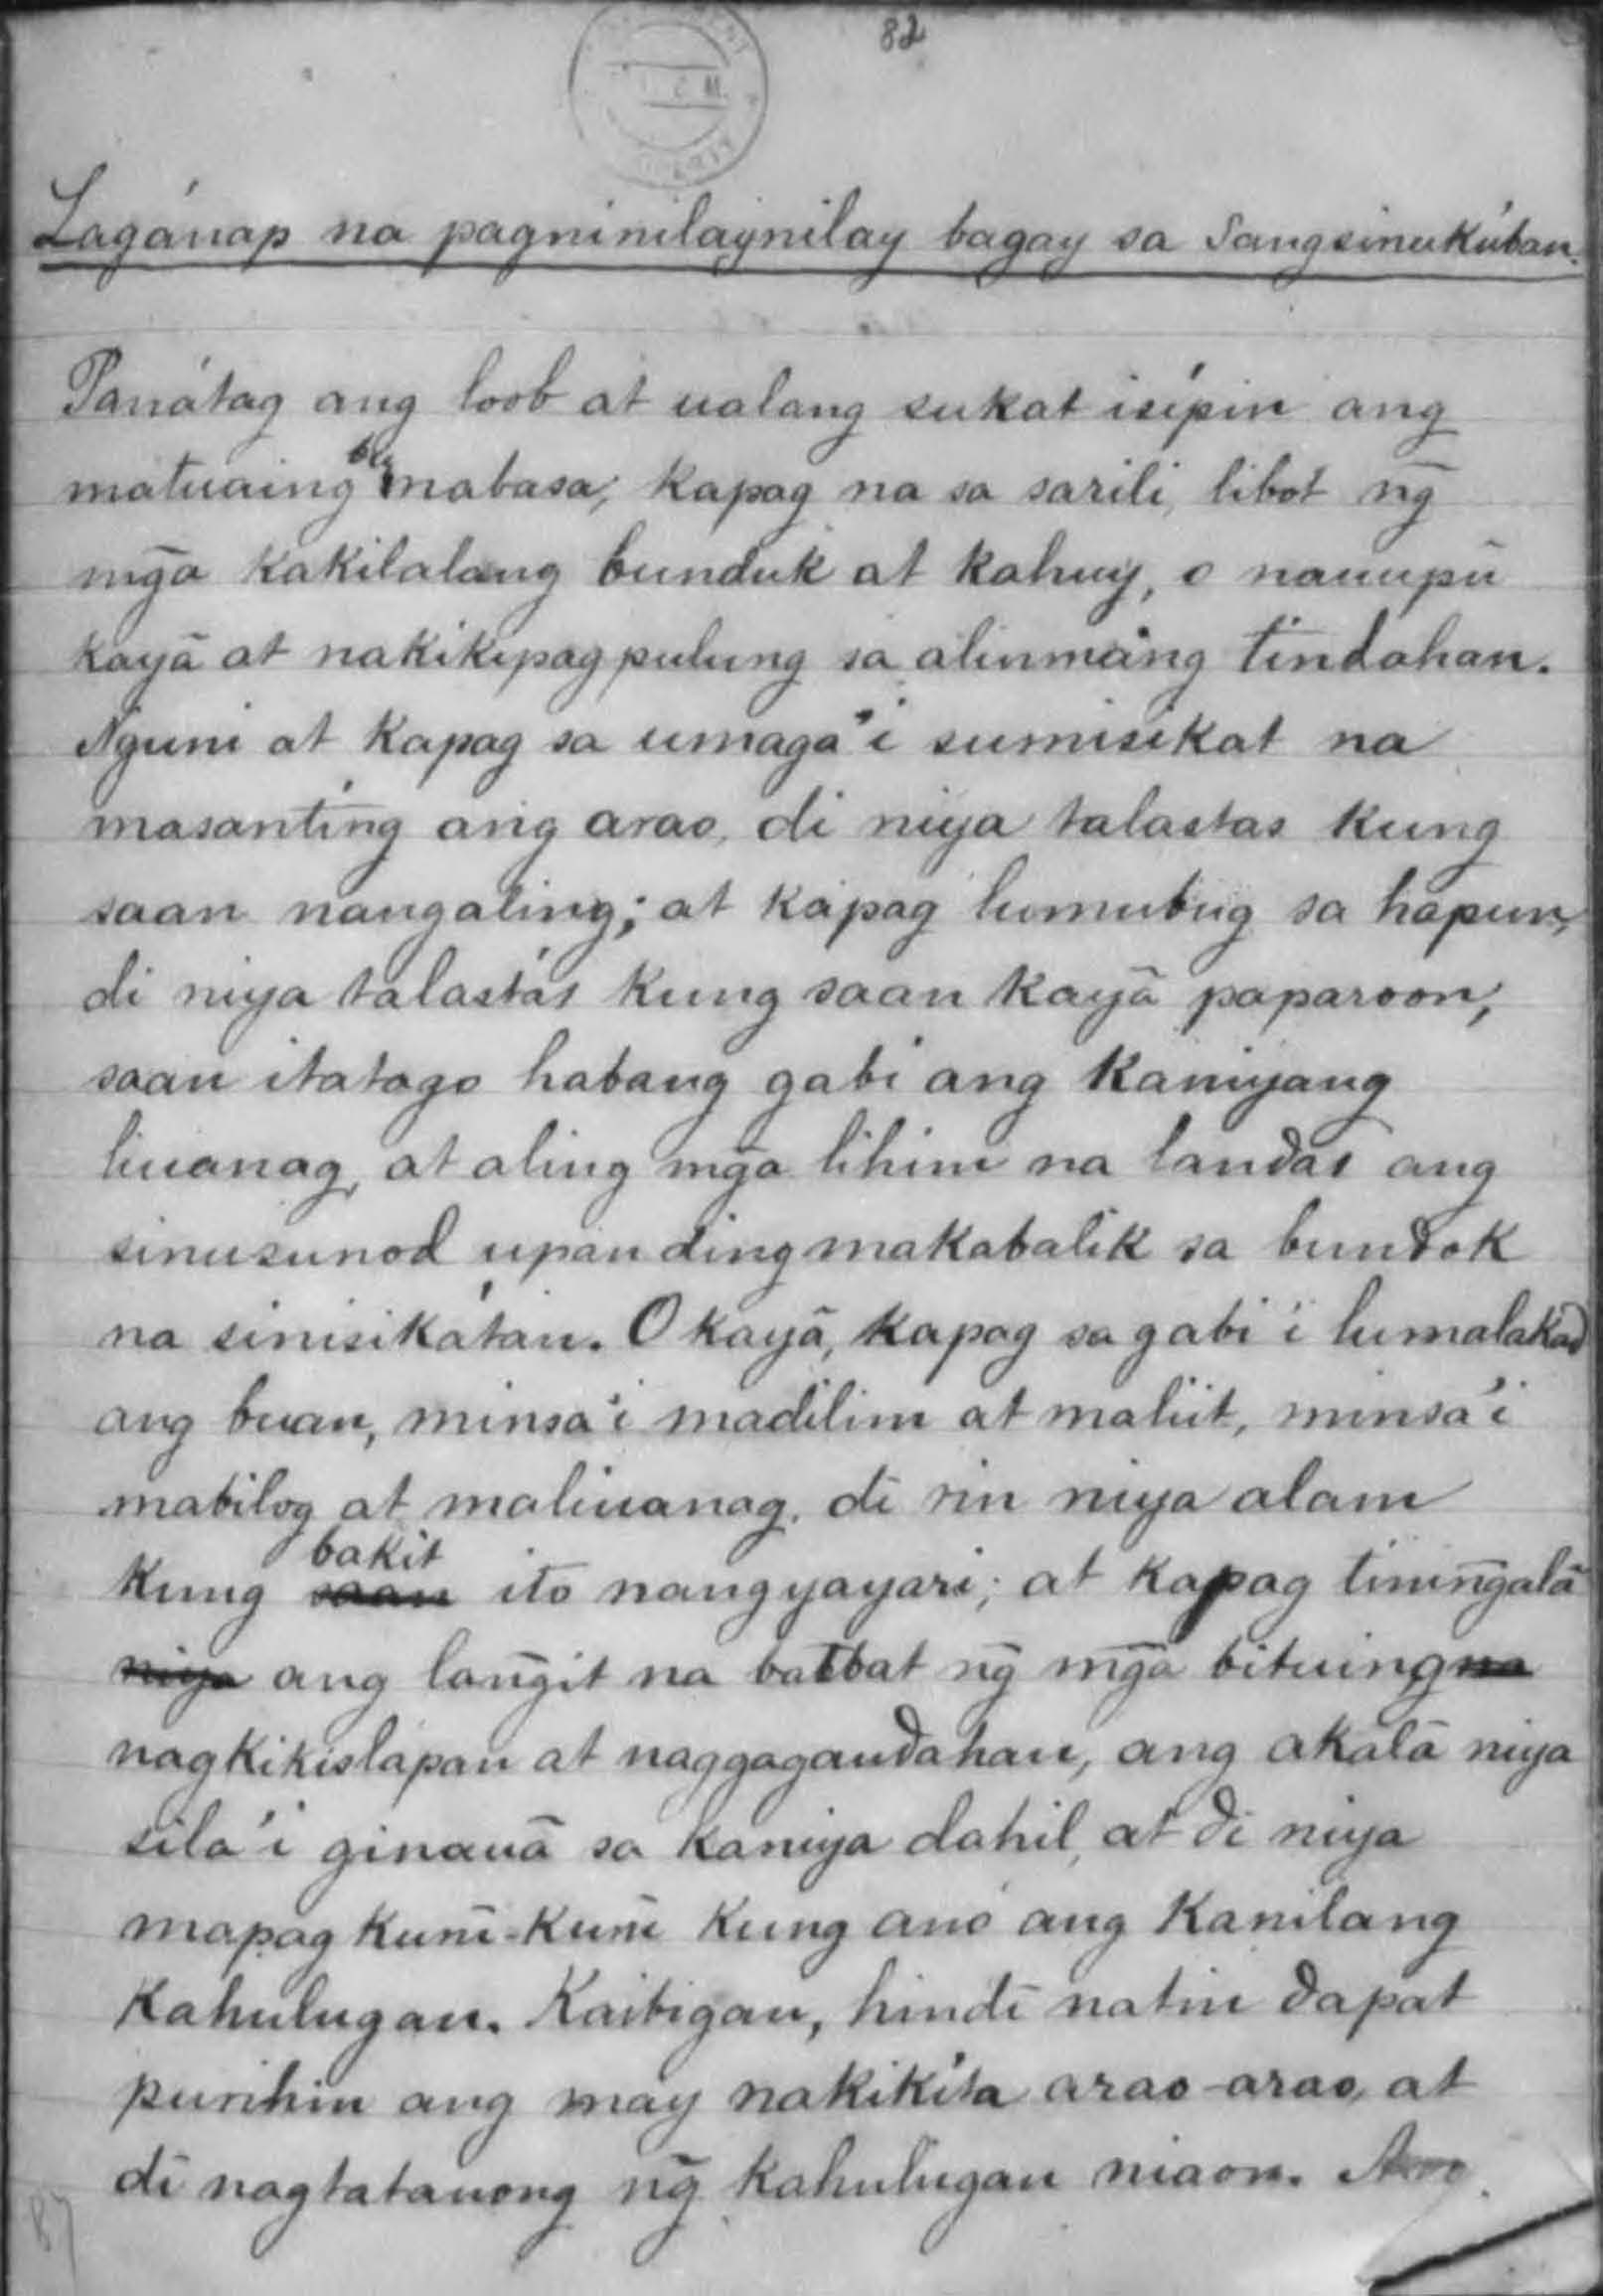 82
Lagánap na pagninilaynilay bagay sa Sangsinukúban.
Panátag ang loob at ualang sukat isípin ang
matuaing mabasa, kapag na sa sarili, libot ng̃
mg̃a kakilalang bunduk at kahuy, o nauupū
kayā at nakikipagpulung sa alinmáng tindahan.
Nguni at kapag sa umaga'i sumisikat na
masánting ang arao, di niya talastas kung
saan nangaling; at kapag lumubug sa hapun,
di niya talastás kung saan kayā paparoon,
saan itatago habang gabi ang kaniyang
liuanag, at aling mg̃a lihim na landas ang
sinusunod upanding makabalik sa bundok
na sinisikátan. O kayā, kapag sa gabi'i lumalakad
ang buan, minsa'i madilim at maliit, minsa'i
mabilog at maliuanag, di rin niya alam
bakit
kung saan ito nangyayari; at kapag tining̃alā
niya ang lang̃it na batbat ng̃ mg̃a bituing na
nagkikislapan at naggagandahan, ang akalā niya
sila'i ginauā sa kaniya dahil, at di niya
mapag kuní-kuní kung anó ang kanilang
kahulugan. Kaibigan, hindī natin dapat
purihin ang may nakikíta arao-arao, at
dī nagtatanong ng̃ kahulugan niaon. Ang
87